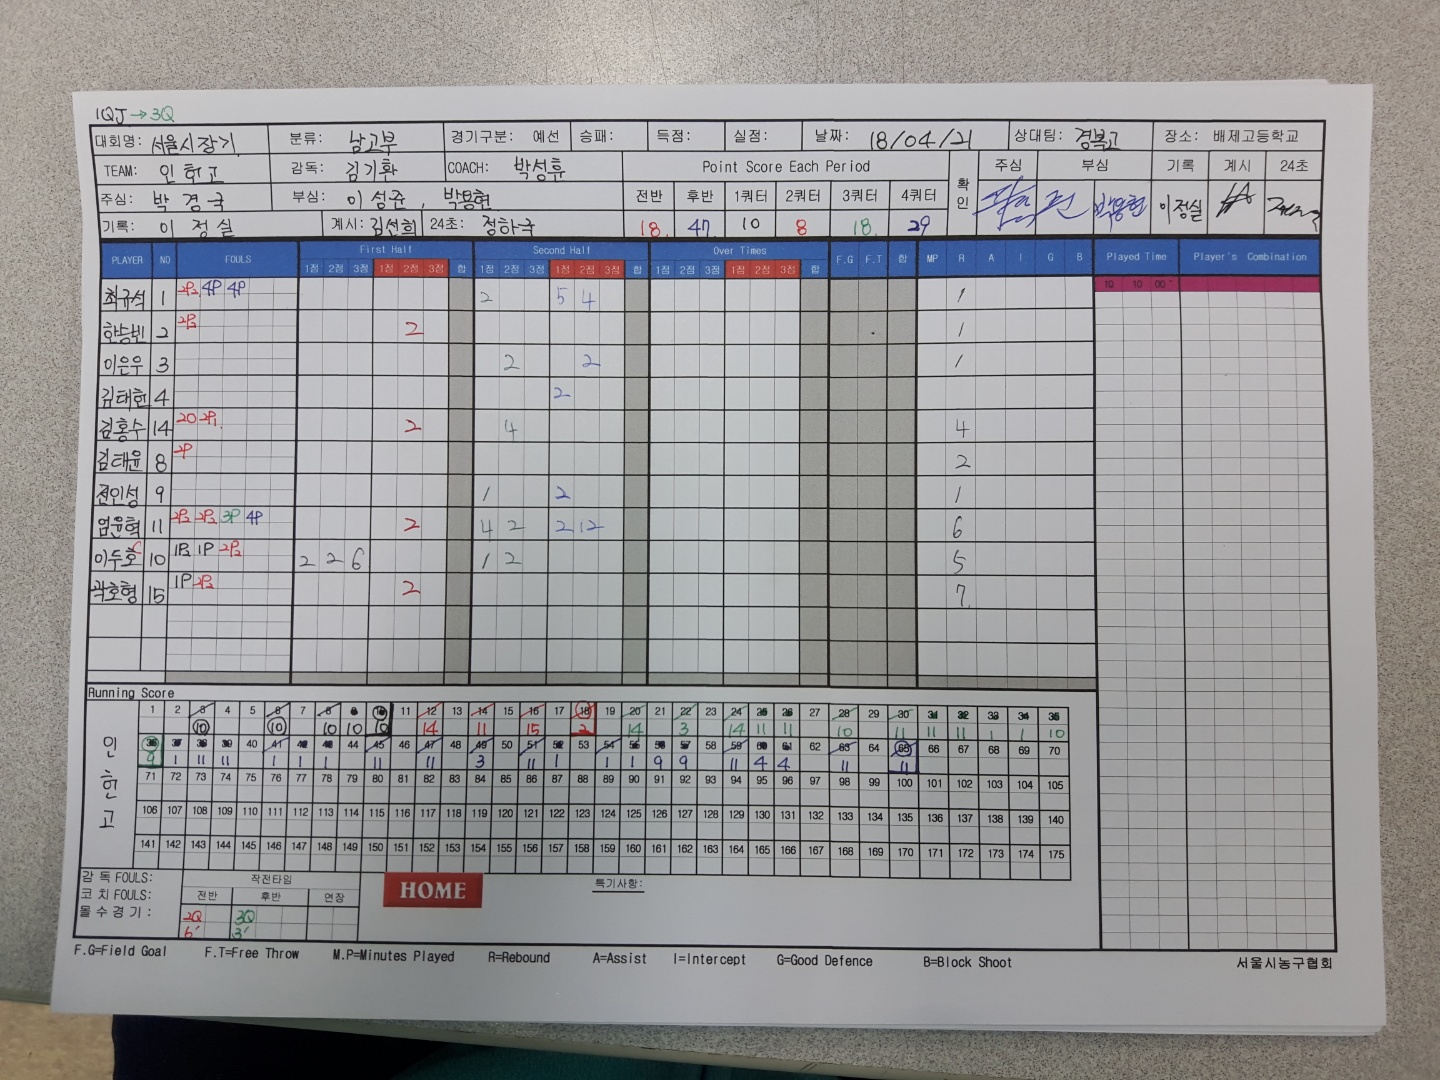 1QJ→3Q
대회명: 서울시장기 분류: 남고부 경기구분: 예선 승패: 득점: 실점: 날짜: 18/04/21 상대팀: 경복고 장소: 배제고등학교
TEAM: 인헌고 감독: 김기환 COACH: 박성훈 Point Score Each Period 확인 주심 부심 기록 계시 24초
주심: 박경국 부심: 이성준, 박용현 전반 후반 1쿼터 2쿼터 3쿼터 4쿼터 박용현 이정실
기록: 이정실 계시: 김선희 24초: 정하국 18 47 10 8 18 29
PLAYER NO FOULS First Half Second Half Over Times F.G F.T 합 MP R A I G B Played Time Player's Combination
1점 2점 3점 1점 2점 3점 합 1점 2점 3점 1점 2점 3점 합 1점 2점 3점 1점 2점 3점 합
최규석 1 2P2 4P 4P 2 5 4 1 10 10 00
한승빈 2 2P2 2 1
이은우 3 2 2 1
김태헌 4 2
김홍수 14 2O 2P1 2 4 4
김태윤 8 2P 2
전인성 9 1 2 1
엄윤혁 11 2P2 2P2 3P 4P 2 4 2 2 12 6
이두호 C 10 1P2 1P 2P2 2 2 6 1 2 5
곽호형 15 1P 2P2 2 7
Running Score
인헌고
1 2 3 4 5 6 7 8 9 10 11 12 13 14 15 16 17 18 19 20 21 22 23 24 25 26 27 28 29 30 31 32 33 34 35
10 10 10 10 10 14 11 15 2 14 3 14 11 11 10 11 11 11 1 1 10
36 37 38 39 40 41 42 43 44 45 46 47 48 49 50 51 52 53 54 55 56 57 58 59 60 61 62 63 64 65 66 67 68 69 70
9 1 11 11 1 1 1 11 11 3 11 1 1 1 9 9 11 4 4 11 11
71 72 73 74 75 76 77 78 79 80 81 82 83 84 85 86 87 88 89 90 91 92 93 94 95 96 97 98 99 100 101 102 103 104 105
106 107 108 109 110 111 112 113 114 115 116 117 118 119 120 121 122 123 124 125 126 127 128 129 130 131 132 133 134 135 136 137 138 139 140
141 142 143 144 145 146 147 148 149 150 151 152 153 154 155 156 157 158 159 160 161 162 163 164 165 166 167 168 169 170 171 172 173 174 175
감독 FOULS: 작전타임 HOME 특기사항:
코치 FOULS: 전반 후반 연장
몰수경기: 2Q 3Q
6' 3'
F.G=Field Goal F.T=Free Throw M.P=Minutes Played R=Rebound A=Assist I=Intercept G=Good Defence B=Block Shoot 서울시농구협회